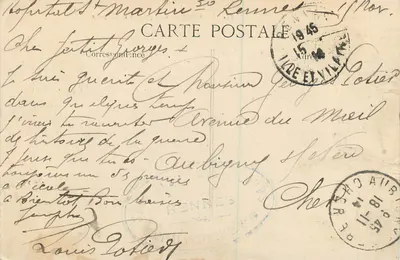 Hopital St Martin 30 Rennes 15 Nov.
CARTE POSTALE
Correspondance
Cher Gentil Georges
19 45
15
14
ILLE ET VILAINE
Je suis guerit et Monsieur Georges Potier
dans quelques temps
j'irais te raconter Avenue du Mail
de histoire de la guerre
Aubigny s/ Nère
toujours un des premiers
a l'école Cher
a Bientot Bons baisers
Louis Potier
RENNES
AUBIGNY
CHER
18-11
14